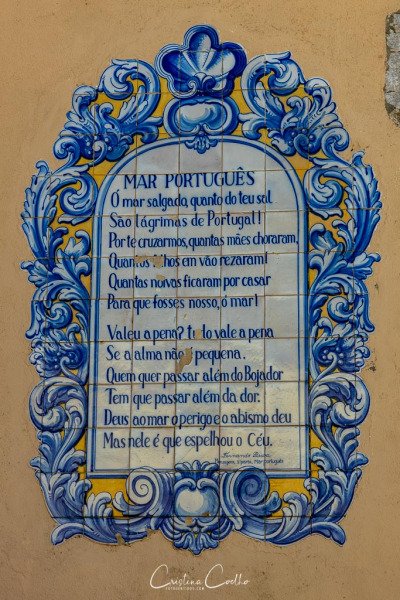 MAR PORTUGUÊS
O mar salgado, quanto do teu sal
São lágrimas de Portugal!
Por te cruzarmos, quantas mães choraram,
Quantos filhos em vão rezaram!
Quantas noivas ficaram por casar
Para que fosses nosso, ó mar!
Valeu a pena? tudo vale a pena
Se a alma não é pequena.
Quem quer passar além do Bojador
Tem que passar além da dor.
Deus ao mar o perigo e o abismo deu
Mas nele é que espelhou o Céu.
Fernando Pessoa
Mensagem, II parte, Mar Português
Cristina Coelho